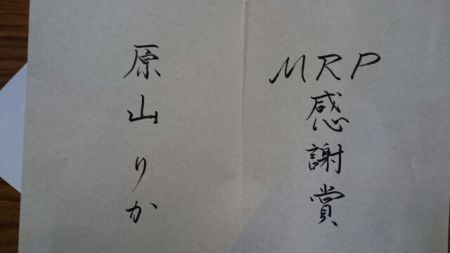 MRP感謝賞
原山りか